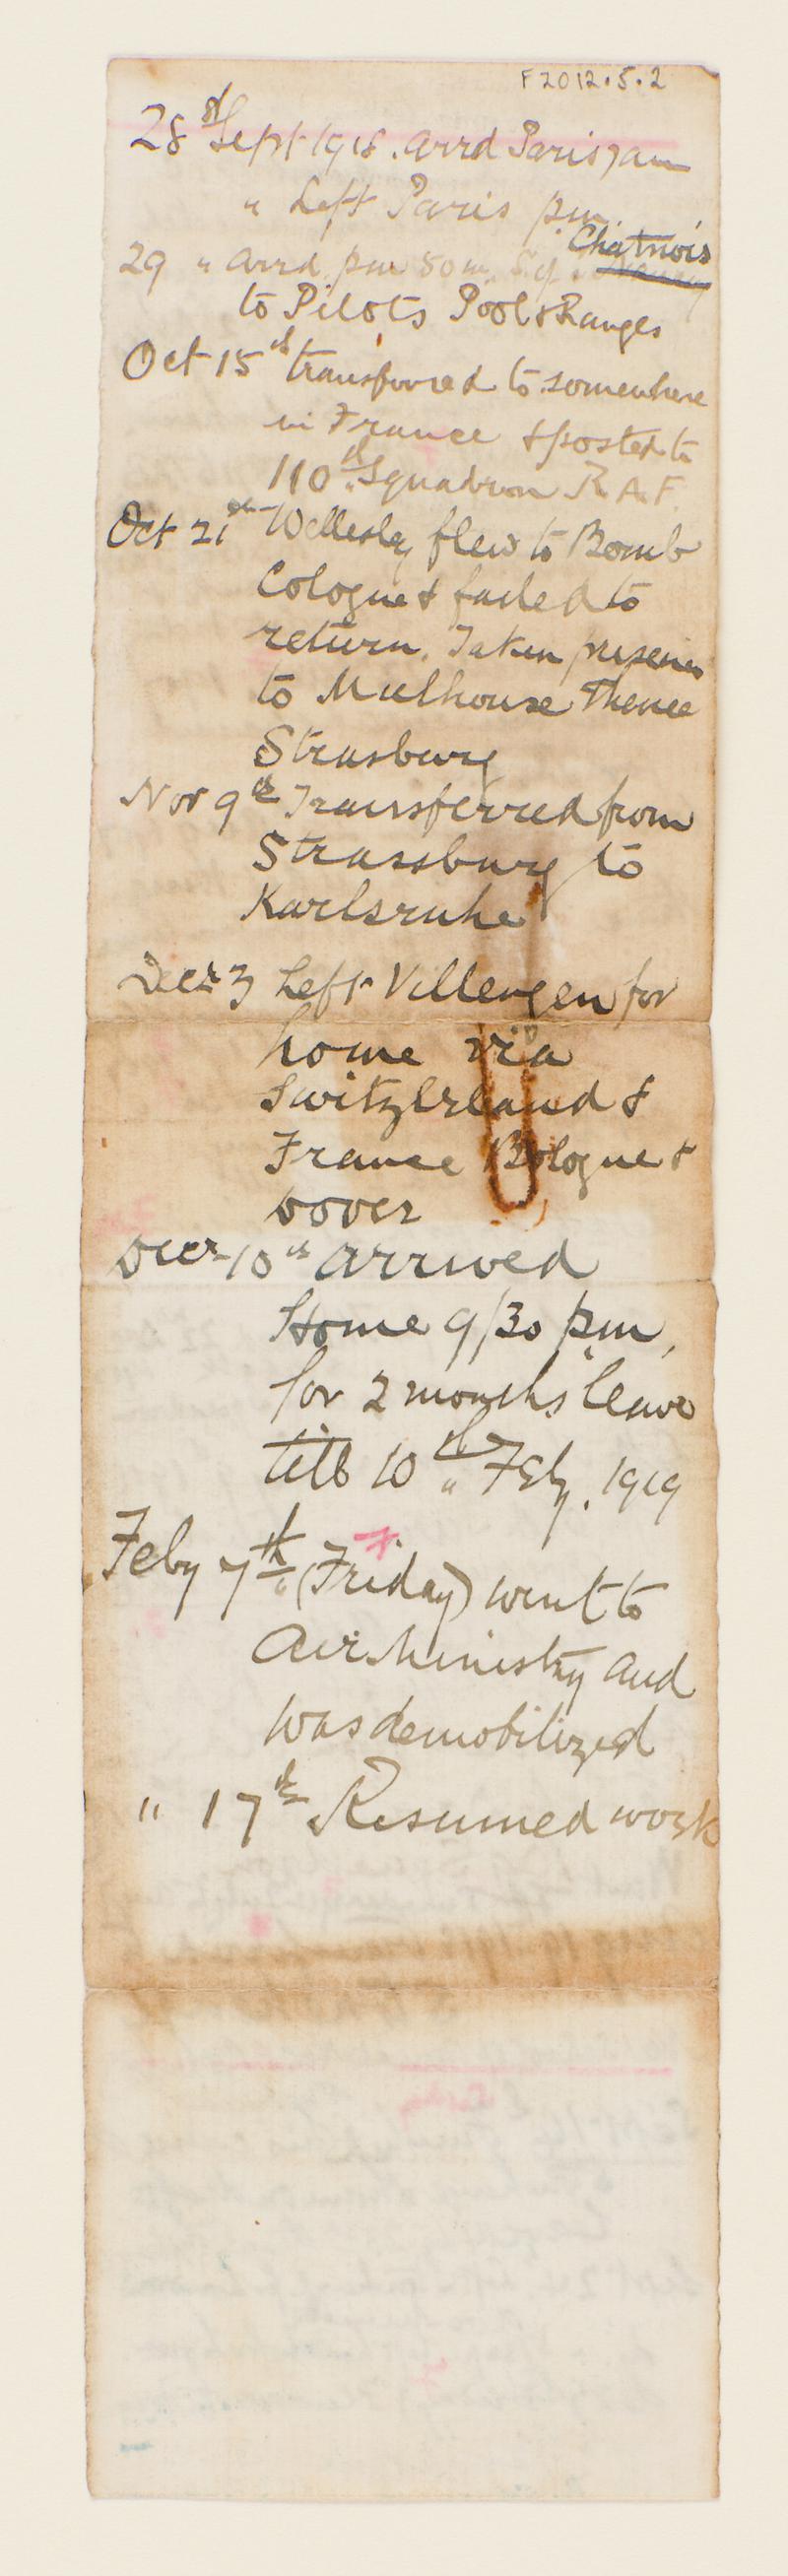 F2012.5.2
28th Sept 1918. arrd Paris 7am
" Left Paris pm.
Chatnois
29 " arrd pm 50 m.
to Pilots Pool & Ranges
Oct 15th transferred to somewhere
in France & posted to
110th Squadron R.A.F.
Oct 21st Wellesley flew to Bomb
Cologne & failed to
return. Taken prisoner
to Mulhouse Thence
Strasburg
Nov 9th Transferred from
Strassburg to
Karlsruhe
Decr 3 Left Villengen for
home via
Switzlrland &
France Bologne &
Dover
Decr 10th arrived
Home 9/30 pm,
for 2 months leave
till 10th Feby. 1919
Feby 7th (Friday) went to
Air Ministry and
was demobilized
" 17th Resumed work